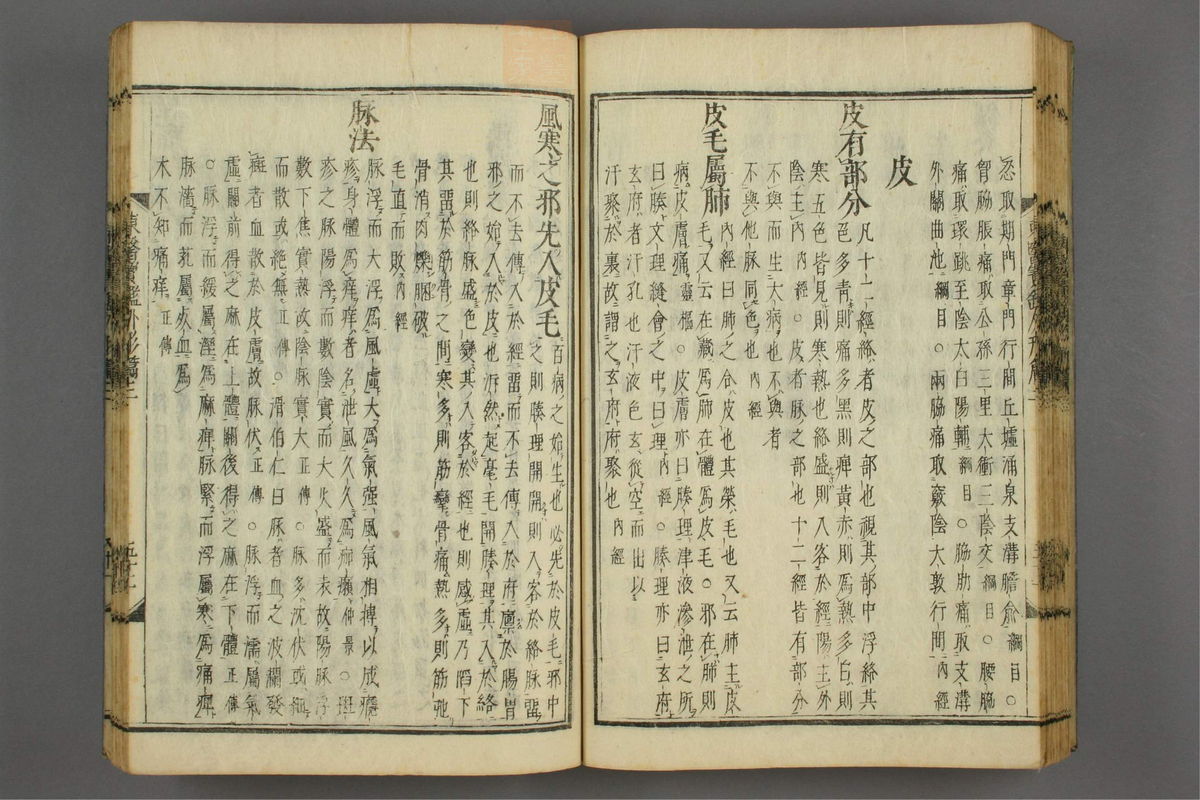 忍取期門章門行間丘墟涌泉支溝膽俞綱目○
胷脇脹痛取公孫三里太衝三陰交綱目○腰脇
痛取環跳至陰太白陽輔綱目○脇肋痛取支溝
外關曲池綱目○兩脇痛取竅陰大敦行間內經
皮
皮有部分凡十二經絡者皮之部也視其部中浮絡其
色多青則痛多黑則痺黃赤則爲熱多白則
寒五色皆見則寒熱也絡盛則入客於經陽主外
陰主內內經○皮者脉之部也十二經皆有部分
不與而生大病也不與者
不與他脉同色也內經
皮毛屬肺內經曰肺之合皮也其榮毛也又云肺主皮
毛又云在藏爲肺在體爲皮毛○邪在肺則
病皮膚痛靈樞○皮膚亦曰腠理津液滲泄之所
曰腠文理縫會之中曰理內經○腠理亦曰玄府
玄府者汗孔也汗液色玄從空而出以
汗聚於裏故謂之玄府府聚也內經
風寒之邪先入皮毛百病之始生也必先於皮毛邪中
之則腠理開開則入客於絡脉留
而不去傳入於經留而不去傳入於府廩於腸胃
邪之始入於皮也泝然起毫毛開腠理其入於絡
也則絡脉盛色變其入客於經也則感虛乃陷下
其留於筋骨之間寒多則筋攣骨痛熱多則筋弛
骨消肉爍䐃破
毛直而敗內經
脉法
脉浮而大浮爲風虛大爲氣强風氣相搏以成癮
疹身體爲痒痒者名泄風久久爲痂癩仲景○斑
疹之脉陽浮而數陰實而大火盛而表故陽脉浮
數下焦實熱故陰脉實大正傳○脉多沉伏或細
而散或絶無正傳○滑伯仁曰脉者血之波瀾發
斑者血散於皮膚故脉伏正傳○脉浮而濡屬氣
虛關前得之麻在上體關後得之麻在下體正傳
○脉浮而緩屬溼爲麻痺脉緊而浮屬寒爲痛痺
脉濇而芤屬死血爲
木不知痛痒正傳
東醫寶鑑外形篇